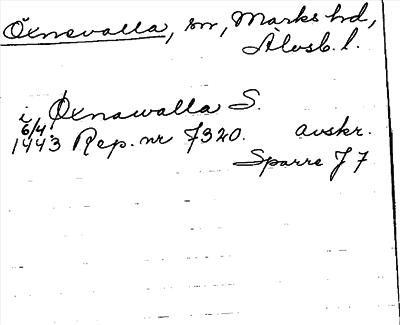 Öxnevalla, sn, Marks hd,
Älvsb. l.
i Øxnawalla S.
6/4 1443 Rep. nr 7320. avskr.
Sparre J 7